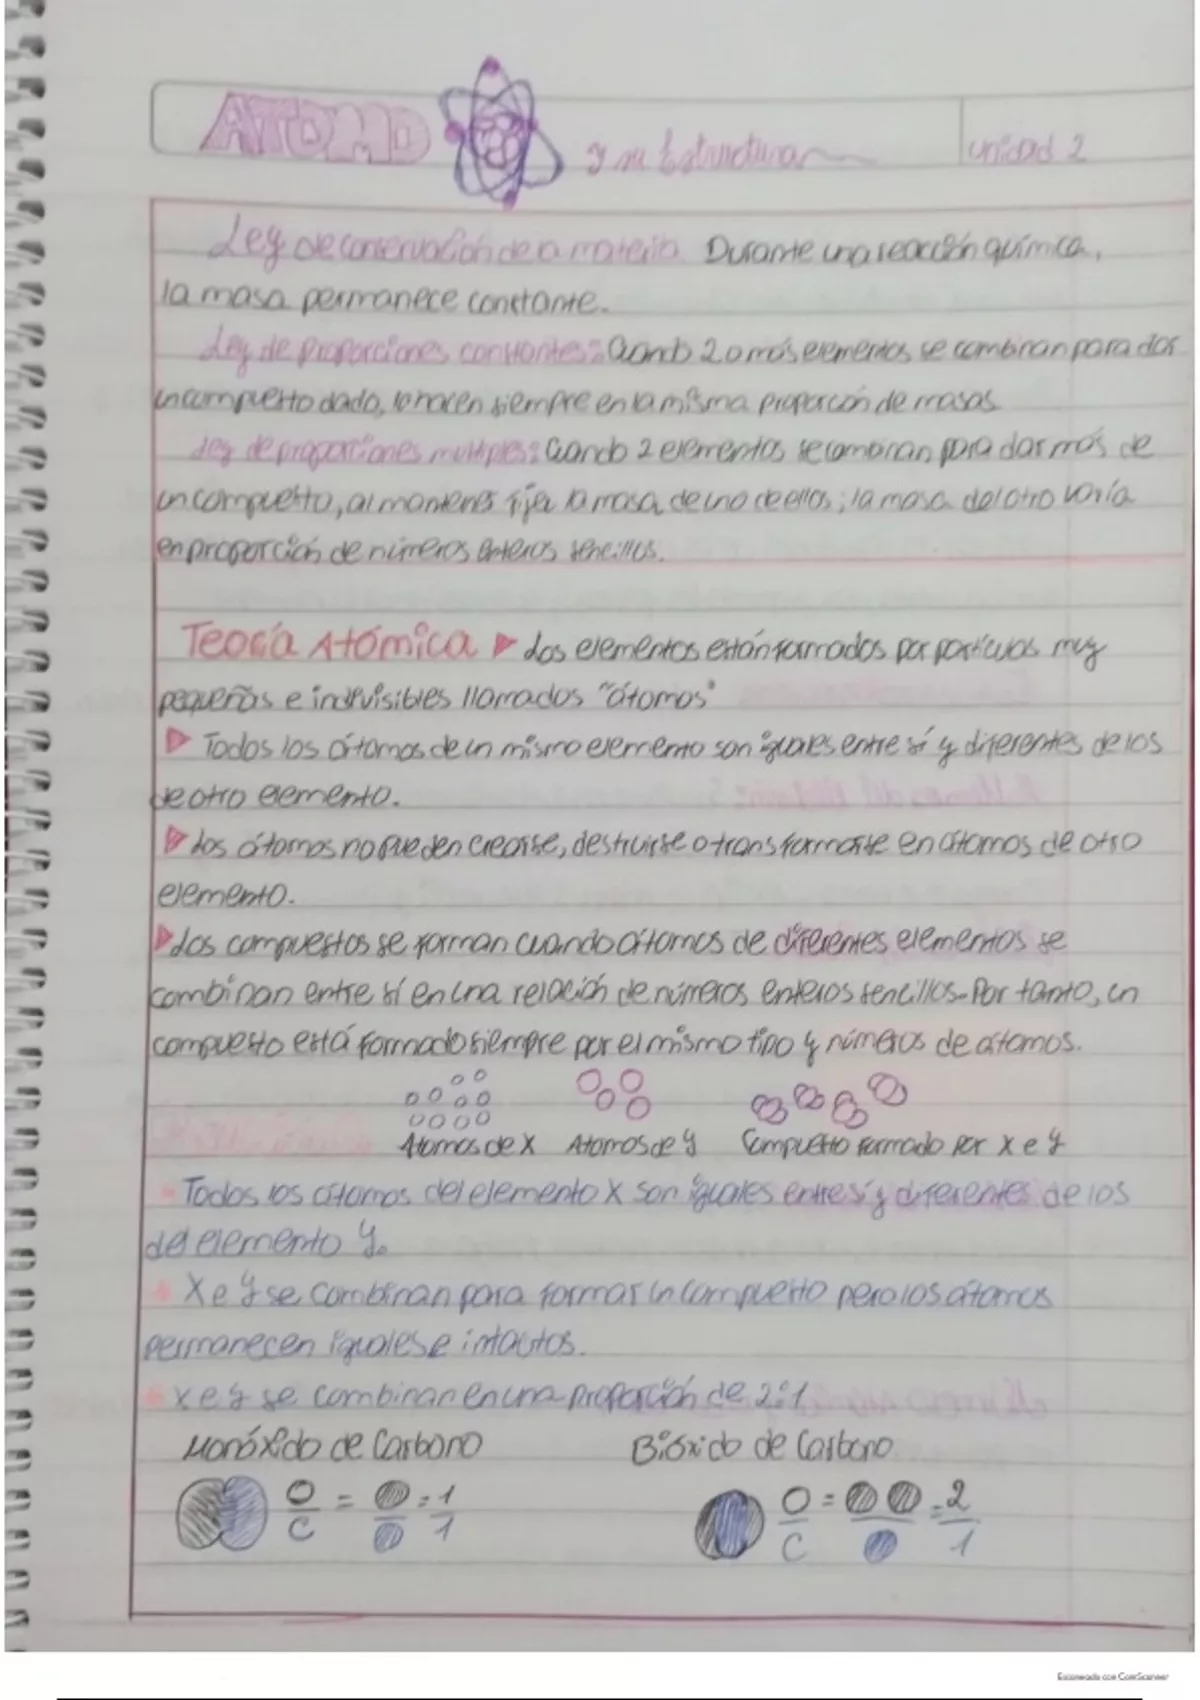 ATOMO y su Estructura unidad 2
Ley de conservación de la materia Durante una reacción química,
la masa permanece constante.
Ley de proporciones constantes: Cuando 2 o más elementos se combinan para dar
un compuesto dado, lo hacen siempre en la misma proporción de masas
Ley de proporciones multiples: Cuando 2 elementos se combinan para dar más de
un compuesto, al mantener fija la masa de uno de ellos; la masa del otro varía
en proporción de números enteros sencillos.
Teoría Atómica ▶ Los elementos están formados por partículas muy
pequeñas e indivisibles llamados "átomos"
▶ Todos los átomos de un mismo elemento son iguales entre sí y diferentes de los
de otro elemento.
▶ Los átomos no pueden crearse, destruirse o transformarse en átomos de otro
elemento.
▶ Los compuestos se forman cuando átomos de diferentes elementos se
combinan entre sí en una relación de números enteros sencillos. Por tanto, un
compuesto está formado siempre por el mismo tipo y números de átomos.
Atomos de X Atomos de y Compuesto formado por x e y
Todos los átomos del elemento X son iguales entre sí y diferentes de los
del elemento y.
X e y se combinan para formar un compuesto pero los átomos
permanecen iguales e intactos.
X e y se combinan en una proporción de 2:1
Monóxido de Carbono Bióxido de Carbono
O = = 1 O = = 2
C 1 C 1
Escaneado con CamScanner